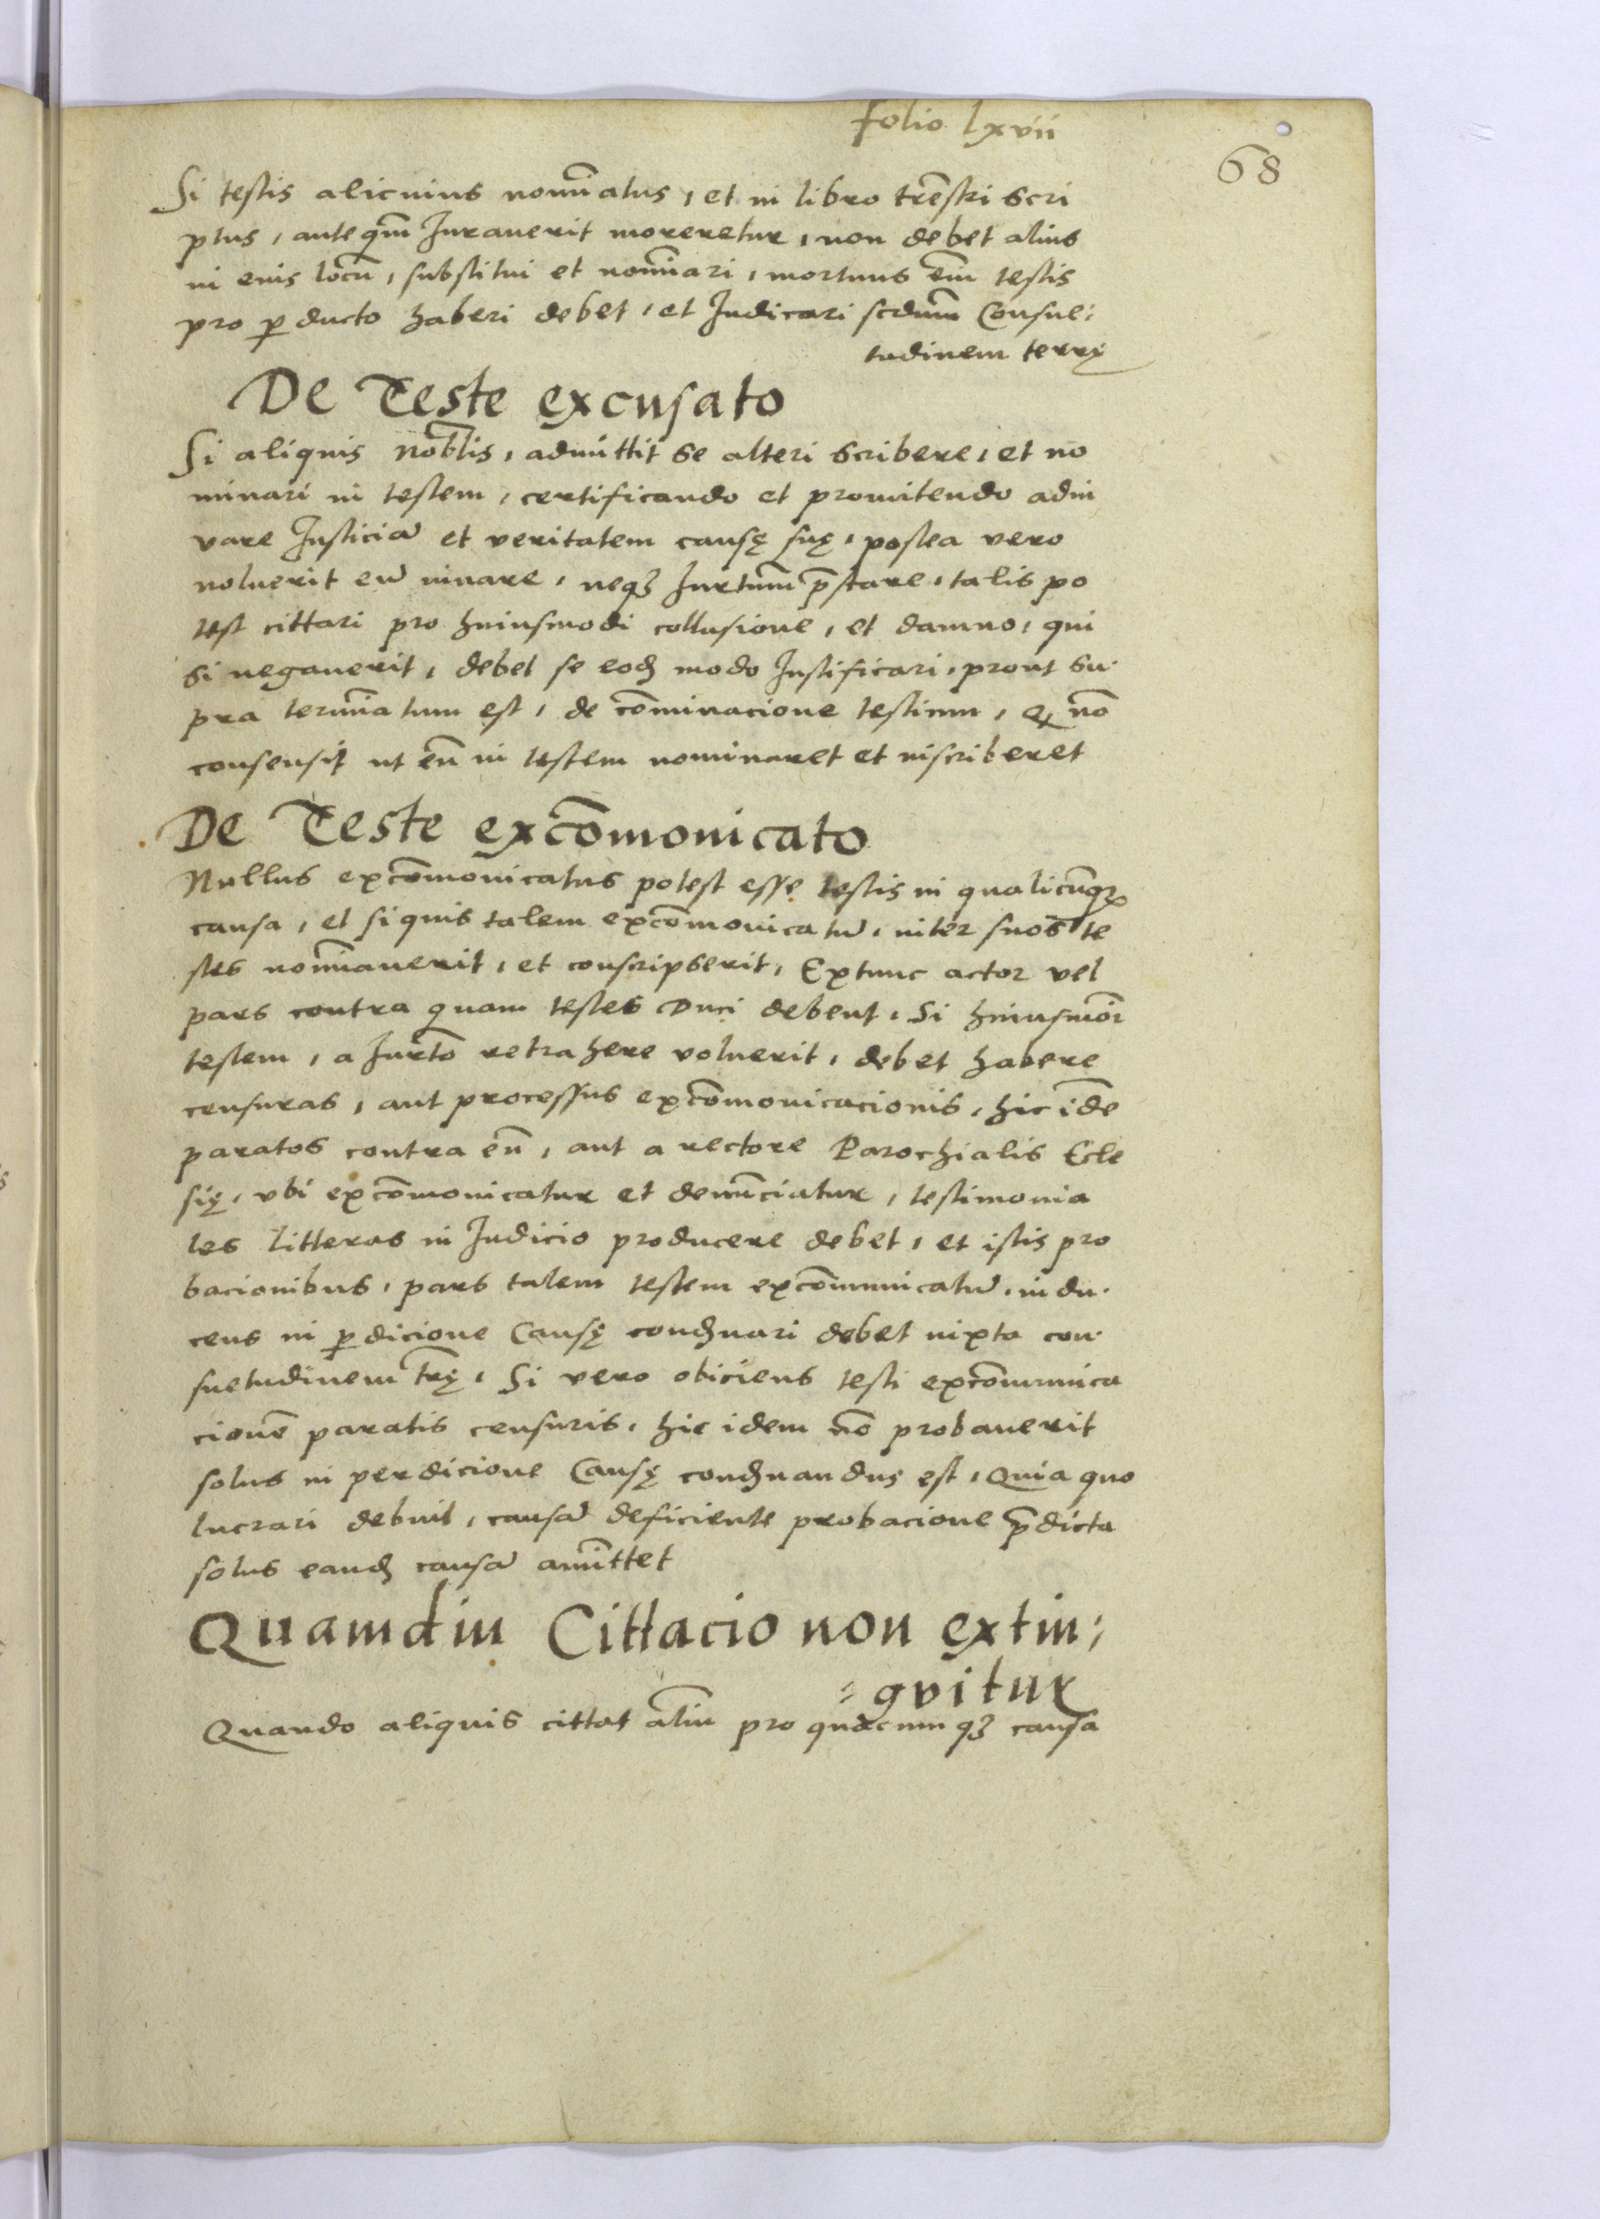 folio lxvii
68
Si testis alicuius nom̄iatus, et in libro tr̄estri scri
ptus, ante qm̄ Iuraverit moreretur, non debet alius
in eius locū, substitui et nom̄iari, mortuus em̄ testis
pro ꝓducto haberi debet, et Iudicari scdum̄ Consue:
tudinem terrę
De Teste excusato
Si aliquis nob̄lis, admittit se alteri scribere, et no
minari in testem, certificando et promitendo adiu
vare Iusticiā et veritatem causę suę, postea vero
noluerit eū iuvare, neqꝫ Iurtum̄ p̄stare, talis po
test cittari pro huiusmodi collusione, et damno, qui
si negaverit, debet se eodꝫ modo Iustificari, prout su-
pra termīatum est, de com̄inacione testium, ꝙ nō
consensit ut eū in testem nominaret et inscriberet
De Teste excōmonicato
Nullus excōmonicatus potest esse testis in qualicūqꝫ
causa, et si quis talem excōmonicatū, inter suos te
stes nom̄iaverit, et conscripserit, Extunc actor vel
pars contra quam testes Duci debent, Si huiusmōi
testem, a Iurt̄o retrahere voluerit, debet habere
censuras, aut processus excōmonicacionis, hic idē
paratos contra eū, aut a rectore Parochialis Ecle
się, vbi excōmonicatur et denūciatur, testimonia
les litteras in Iudicio producere debet, et istis pro
bacionibus, pars talem testem excōmunicatū, indu-
cens in ꝑdicione Causę condꝫnari debet iuxta con-
suetudinem tr̄ę, Si vero obiciens testi excōmunica
cionē paratis censuris, hic idem nō probaverit
solus in perdicione Causę condꝫnandus est, Quia quo
lucrari debuit, causā deficiente probacione p̄dicta
solus eandꝫ causā amīttet
Quamdiu Cittacio non extin:
=gvitur
Quando aliquis cittat aliū pro quacumqꝫ causa